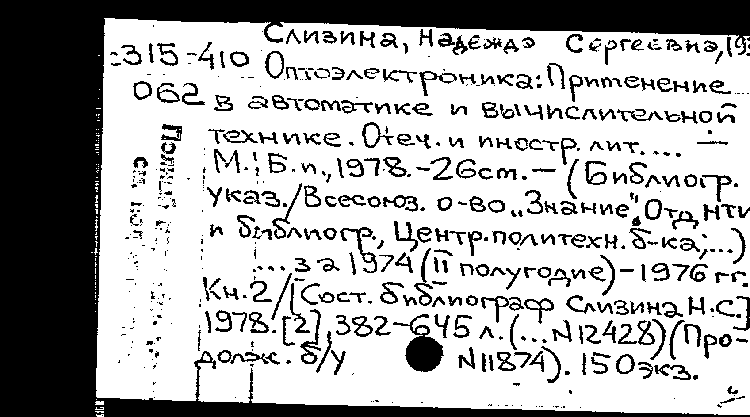 Слизина, Надежда Сергеевна, 193
315-410 Оптоэлектроника: Применение
062 в автоматике и вычислительной
технике. Отеч. и иностр. лит. ... —
М.: Б. и., 1978. - 26 см. — (Библиогр.
указ. / Всесоюз. о-во „Знание“, Отд НТИ
и библиогр., Центр. политехн. б-ка; ...)
... за 1974 (II полугодие) - 1976 гг.
Кн. 2 / [Сост. библиограф Слизина Н.С.]
1978. [2], 382-645 л. (... N 12428) (Про-
долж. б/у N11874). 150 экз.